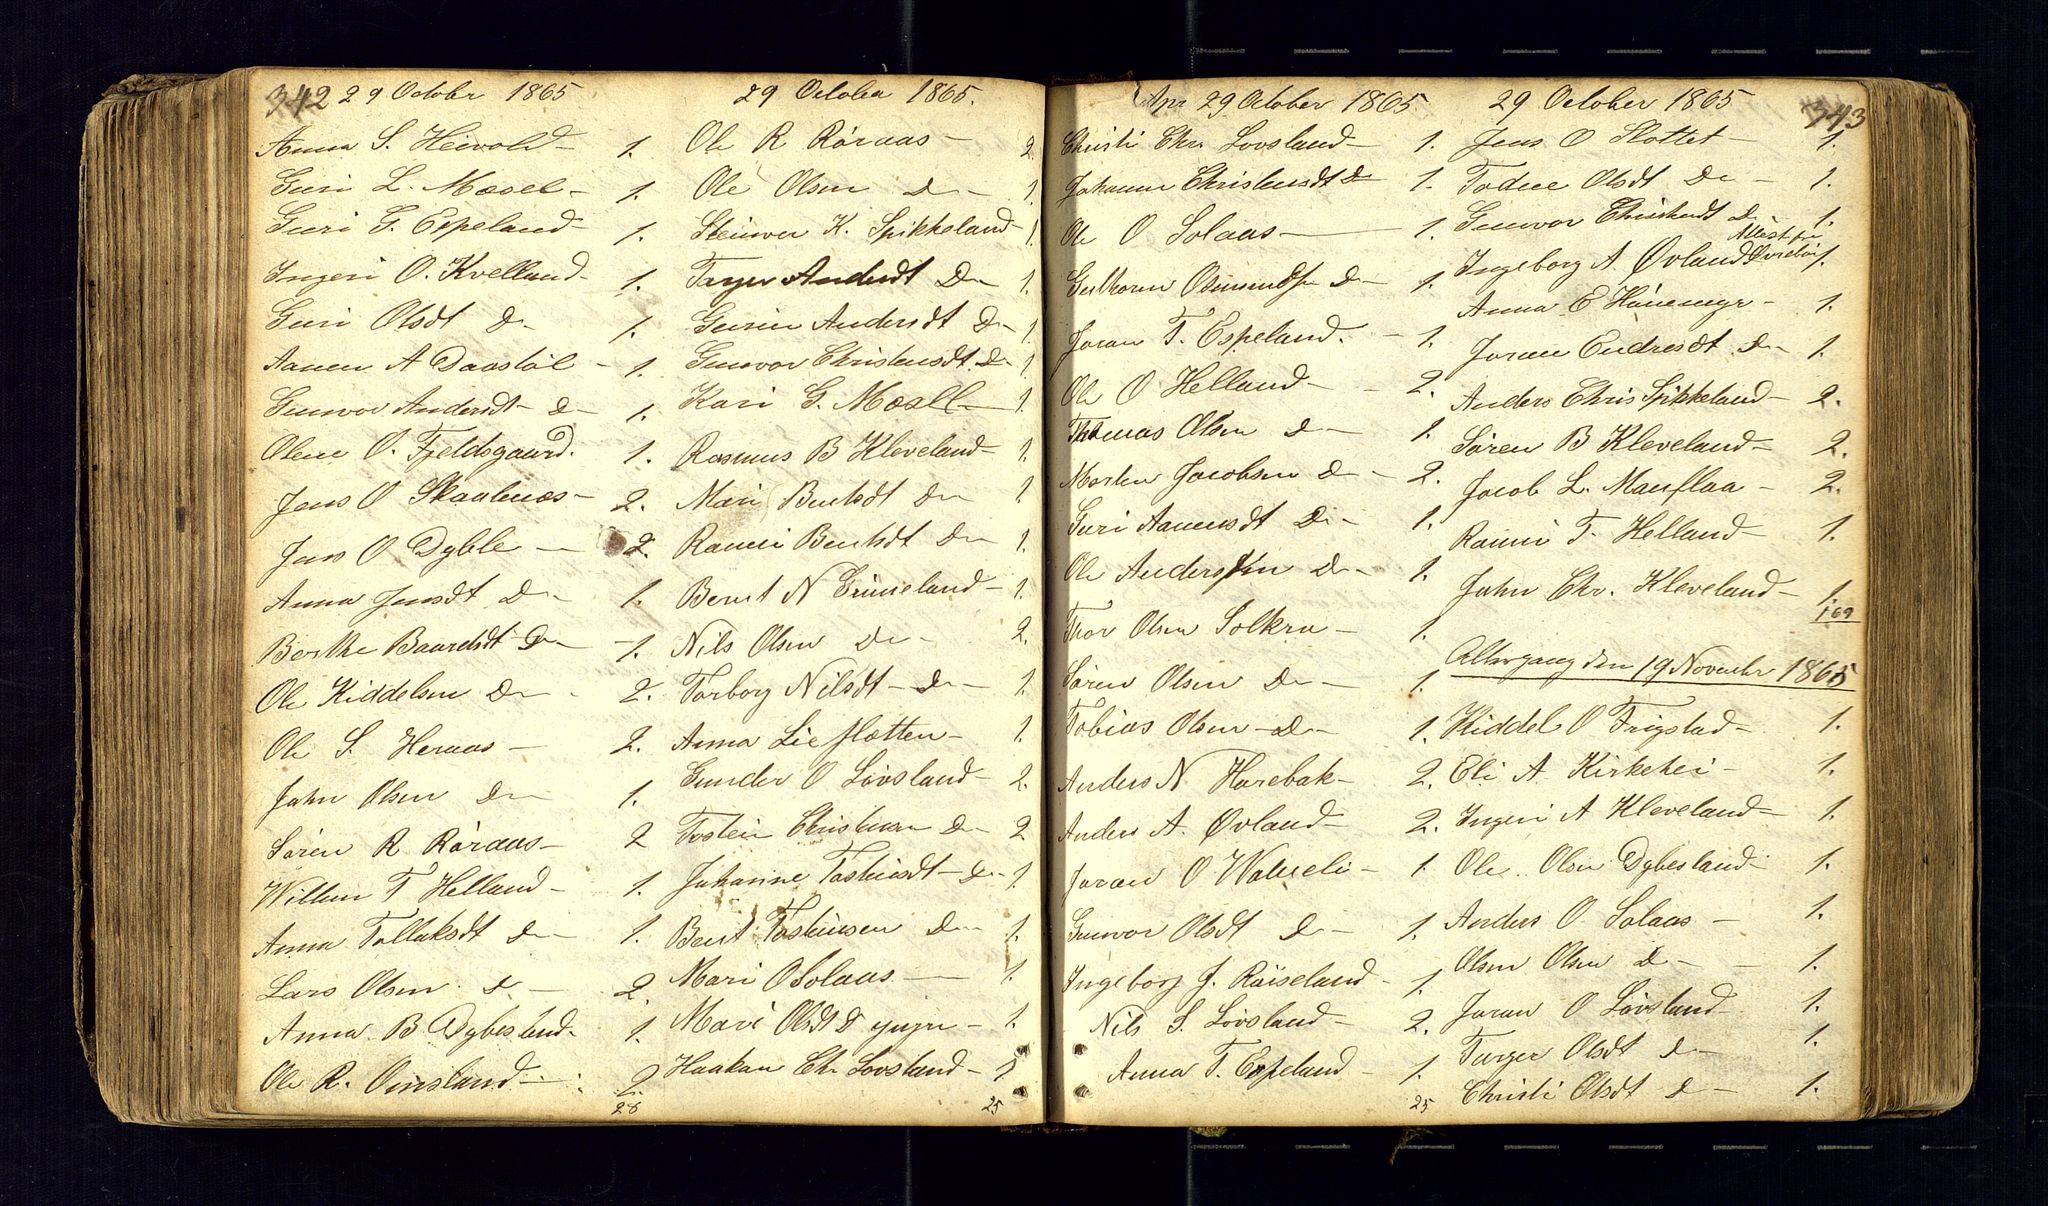 342 29 October 1865
Anna S. Heivold - 1.
Guri L. Mæsel - 1.
Guri T. Espeland - 1.
Ingeri O. Kvelland - 1.
Guri Olsdt D - 1.
Aanen A Daastöl - 1.
Gunvor Andersdt - D - 1.
Olene O. Fjeldsgaard. 1.
Jens O Skaalnæs - 2.
Jens O Dyble - 2.
Anna Jensdt D - 1.
Berthe Baardsdt D - 1.
Ole Kiddelsen D - 2.
Ole S. Heraas - 2.
John Olsen D - 1.
Sören R Röraas - 2
Willum T Helland - 1.
Anna Tallaksdt D - 1.
Lars Olsen D - 2.
Anna B Dybesland. 1.
Ole R. Ousland - 2
28
29 October 1865.
Ole R Röraas - 2
Ole Olsen D - 1.
Steinver K. Spikkeland - 1.
Tarjer Andersdt D - 1.
Gurine Andersdt D - 1
Gunvor Christensdt D - 1
Kari G. Mæsel - 1.
Rasmus B Kleveland - 1.
Mari Bentsdt D - 1
Rannei Bentsdt D - 1.
Bernt N Grimeland - 1.
Nils Olsen D - 2.
Torborg Nilsdt - D - 1.
Anna Lieflotten - 1.
Gunder O Lövsland - 2.
Tostein Christensen D - 2
Johanne Tosteinsdt - D - 1.
Bent Tosteinsen D - 1.
Mari O Solaas - 1.
Mari Olsdt D yngre - 1.
Haakon Chr Lövsland - 1
25
29 October 1865
Christi Chr. Lovsland - 1.
Johanne Christensdt D 1.
Ole O Solaas - 1.
Guthorm Osmundsen D - 1.
Joran T. Espeland. - 1.
Ole O Helland - 2.
Thomas Olsen D - 1.
Morten Jacobsen D - 2.
Guri Aanensdt D - 1.
Ole Andersen D - 1.
Thor Olsen Solkra - 1.
Sören Olsen D - 1.
Tobias Olsen - D - 1.
Anders N Harebak - 2.
Anders A. Øvland - 2.
Joran O Watneli - 1.
Gunvor Olsdt D - 1.
Ingeborg J. Röiseland - 1.
Nils S. Lövsland - 2.
Anna T. Espeland - 1.
25
29 October 1865 343
Jens O Slottet - 1.
Todne Olsdt D - 1.
Gunvor Christensdt D - 1.
Attest fra
Ingeborg A. Øvland Øvrebö 1.
Anna E Hönemyr - 1.
Joran Endresdt D - 1.
Anders Chris Spikkeland - 2.
Sören B Kleveland - 2.
Jacob L. Mauflaa - 2.
Rannei T. Helland - 1.
John Chr. Kleveland - 1.
109
Altergang den 19 Novembr 1865
Kiddel O Frigstad - 1.
Eli A Kirkehei - 1.
Ingeri A Kleveland - 1.
Ole Olsen Dybesland 1.
Anders O. Solaas - 1.
Olsen Olsen D - 1.
Joran O Lövsland - 1.
Targer Olsdt D - 1.
Christi Olsdt D - 1.